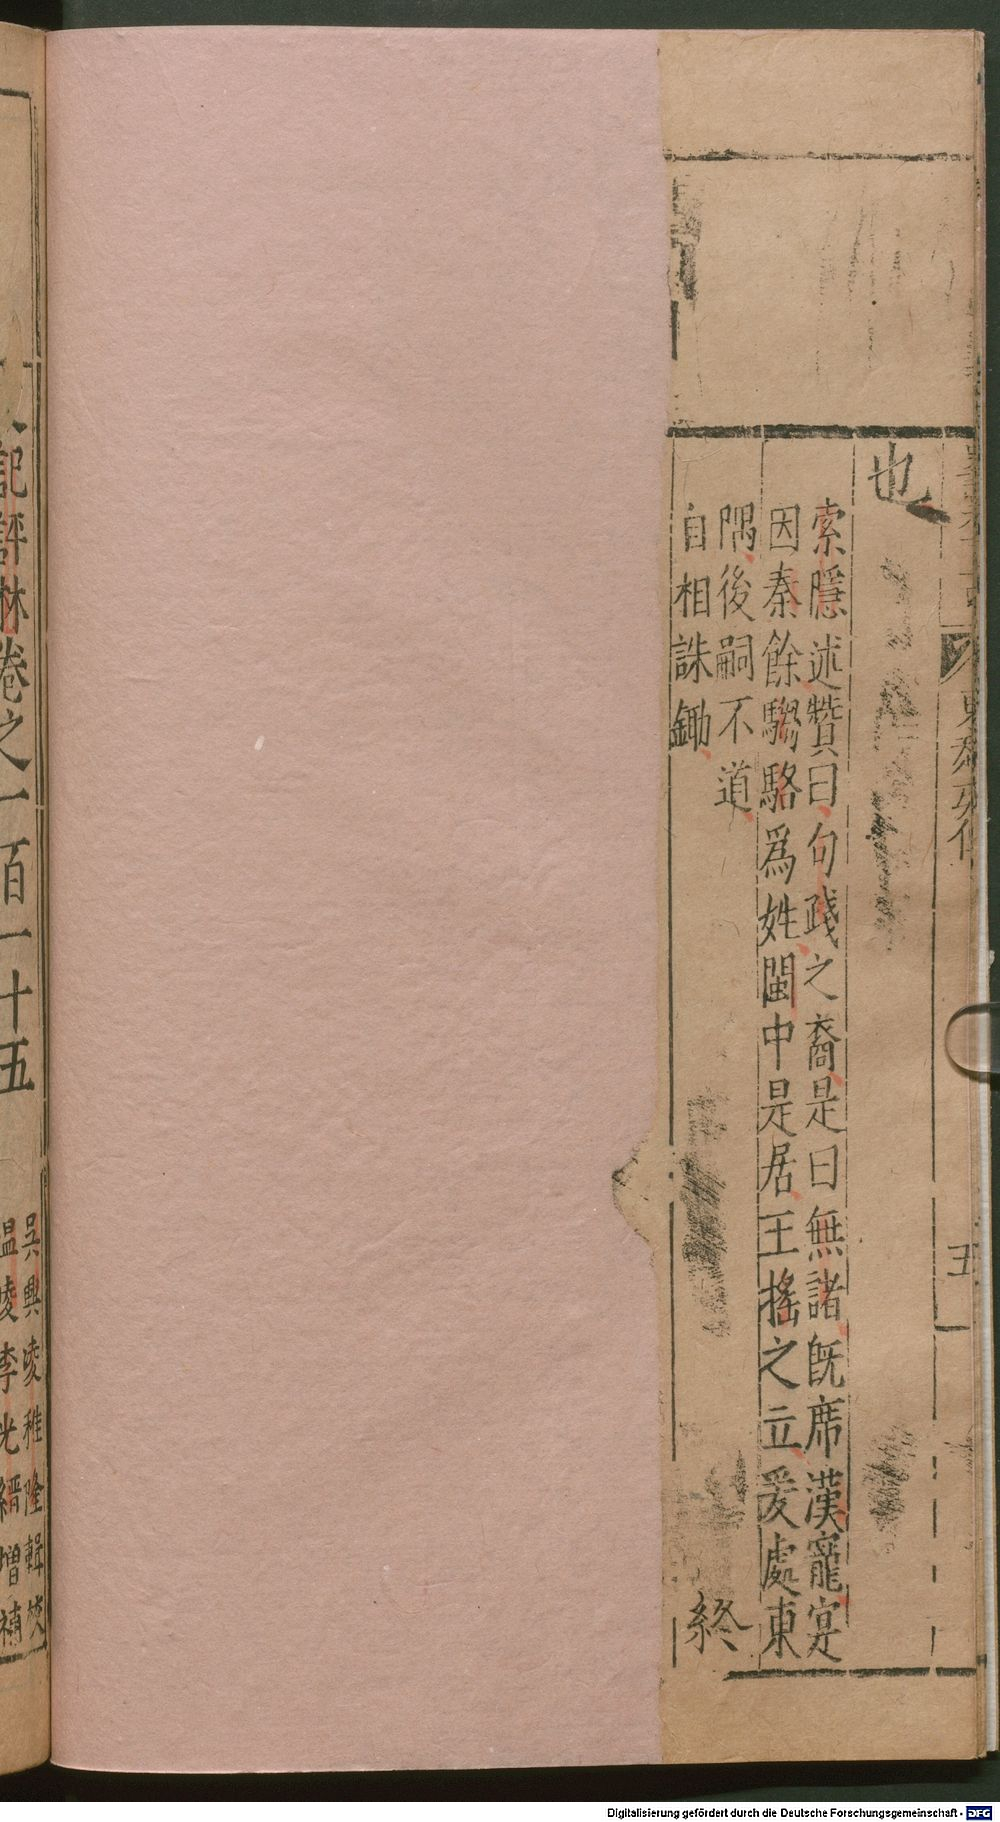 東越列傳
五
也
索隱述贊曰句踐之裔是曰無諸旣席漢寵寔
因秦餘騶駱爲姓閩中是居王搖之立爰處東
隅後嗣不道
自相誅鋤
終
記評林卷之一百一十五
吳興凌稚隆輯挍
温陵李光縉增補
Digitalisierung gefördert durch die Deutsche Forschungsgemeinschaft - DFG